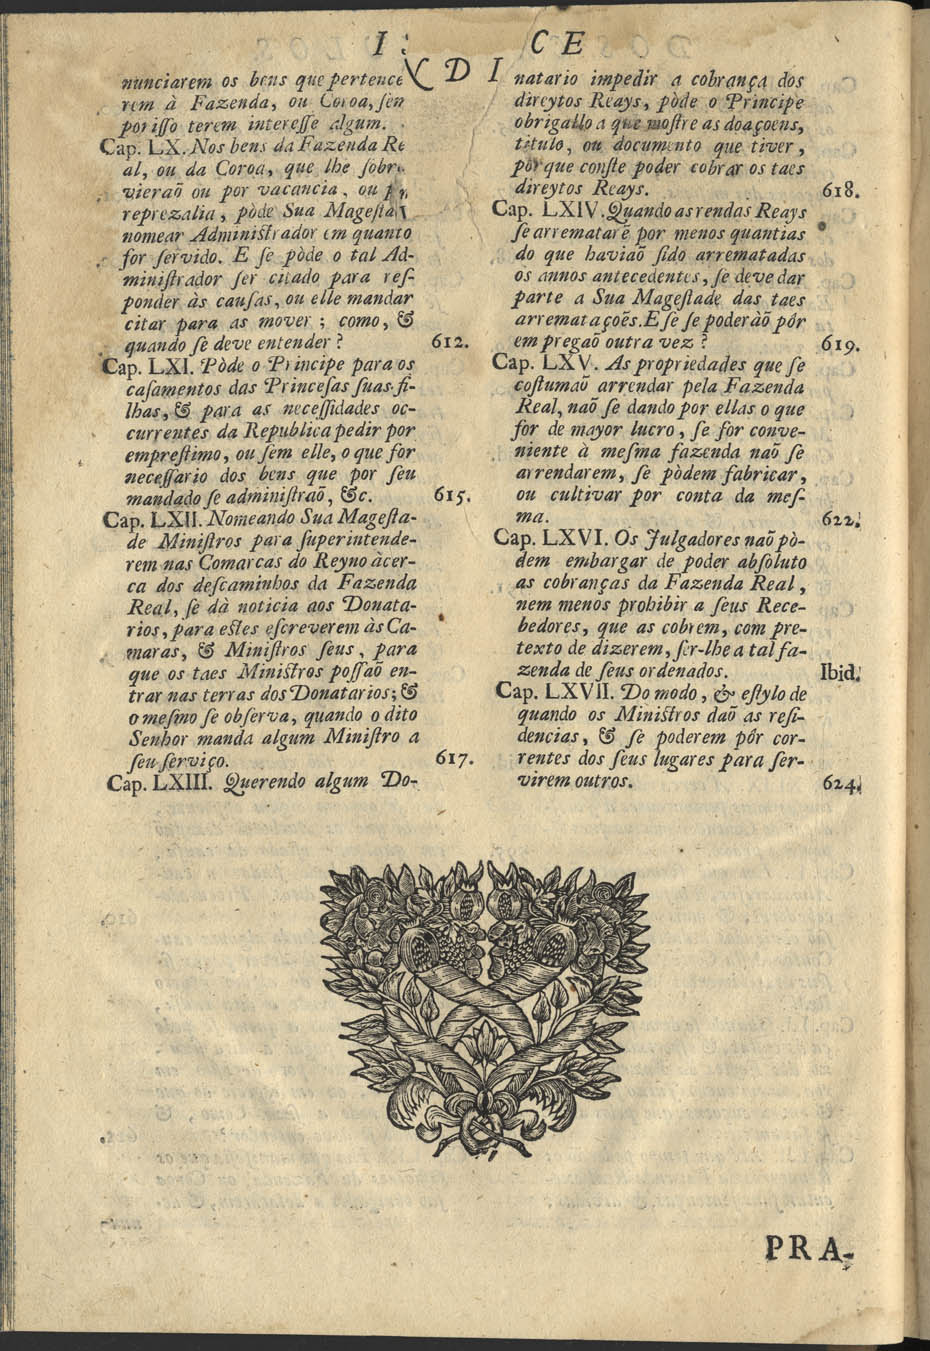 I NDI CE
nunciarem os bens que pertence
rem à Fazenda, ou Coroa, sem
por isso terem interesse algum.
Cap. LX. Nos bens da Fazenda Re
al, ou da Coroa, que lhe sobre
vieraõ ou por vacancia, ou
reprezalia, pòde Sua Magesta
nomear Administrador em quanto
for servido. E se pòde o tal Ad-
ministrador ser citado para res-
ponder às causas, ou elle mandar
citar para as mover; como, &
quando se deve entender? 612.
Cap. LXI. Pòde o Principe para os
casamentos das Princesas suas fi-
lhas, & para as necessidades oc-
currentes da Republica pedir por
emprestimo, ou sem elle, o que for
necessario dos bens que por seu
mandado se administraõ, &c. 615.
Cap. LXII. Nomeando Sua Magesta-
de Ministros para superintende-
rem nas Comarcas do Reyno àcer-
ca dos descaminhos da Fazenda
Real, se dà noticia aos Donata-
rios, para estes escreverem às Ca-
maras, & Ministros seus, para
que os taes Ministros possaõ en-
trar nas terras dos Donatarios; &
o mesmo se observa, quando o dito
Senhor manda algum Ministro a
seu serviço. 617.
Cap. LXIII. Querendo algum Do-
natario impedir a cobrança dos
direytos Reays, pòde o Principe
obrigallo a que mostre as doaçoens,
titulo, ou documento que tiver,
por que conste poder cobrar os taes
direytos Reays. 618.
Cap. LXIV. Quando as rendas Reays
se arrematarẽ por menos quantias
do que haviaõ sido arrematadas
os annos antecedentes, se deve dar
parte a Sua Magestade das taes
arremataçoẽs. E se se poderàõ pôr
em pregaõ outra vez? 619.
Cap. LXV. As propriedades que se
costumaõ arrendar pela Fazenda
Real, naõ se dando por ellas o que
for de mayor lucro, se for conve-
niente à mesma fazenda naõ se
arrendarem, se pòdem fabricar,
ou cultivar por conta da mes-
ma. 622.
Cap. LXVI. Os Julgadores naõ pò-
dem embargar de poder absoluto
as cobranças da Fazenda Real,
nem menos prohibir a seus Rece-
bedores, que as cobrem, com pre-
texto de dizerem, ser-lhe a tal fa-
zenda de seus ordenados. Ibid.
Cap. LXVII. Do modo, & estylo de
quando os Ministros daõ as resi-
dencias, & se poderem pôr cor-
rentes dos seus lugares para ser-
virem outros. 624.
PRA-